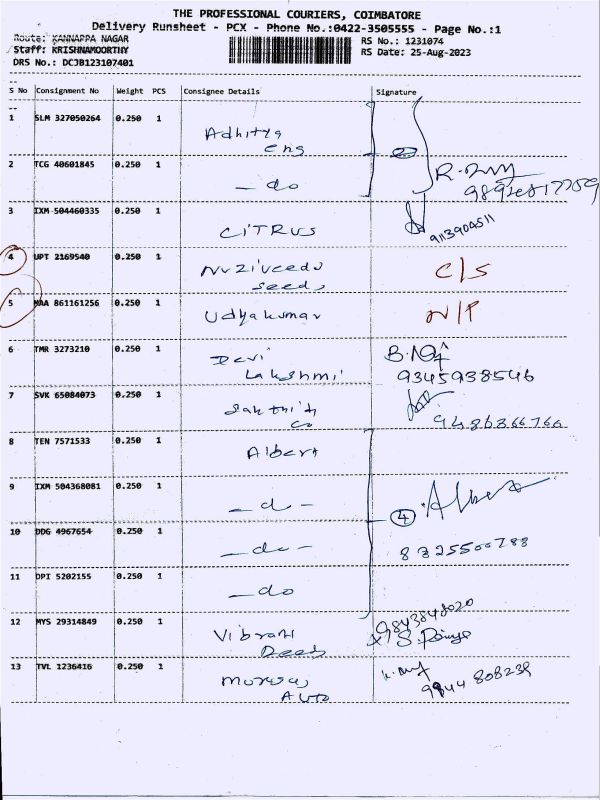 THE PROFESSIONAL COURIERS, COIMBATORE
Delivery Runsheet - PCX - Phone No.:0422-3505555 - Page No.:1
Route: KANNAPPA NAGAR
RS No.: 1231074
Staff: KRISHNAMOORTHY
RS Date: 25-Aug-2023
DRS No.: DCJB123107401
S No Consignment No Weight PCS Consignee Details Signature
1 SLM 327050264 0.250 1 Adhitya
Eng
2 TCG 40601845 0.250 1 — do
3 IXM 504460335 0.250 1 CITRUS
9113904511
4 UPT 2169540 0.250 1 Nuziveedu C/S
Seeds
5 MAA 861161256 0.250 1 Udhyakumar N/P
6 TMR 3273210 0.250 1 Devi
Lakshmi 9345938546
7 SVK 65084073 0.250 1
Co 9486366766
8 TEN 7571533 0.250 1 Albert
9 IXM 504368081 0.250 1 — do —
4
10 DDG 4967654 0.250 1 — do —
11 DPI 5202155 0.250 1 — do
12 MYS 29314849 0.250 1
13 TVL 1236416 0.250 1
Auto 9944 808239